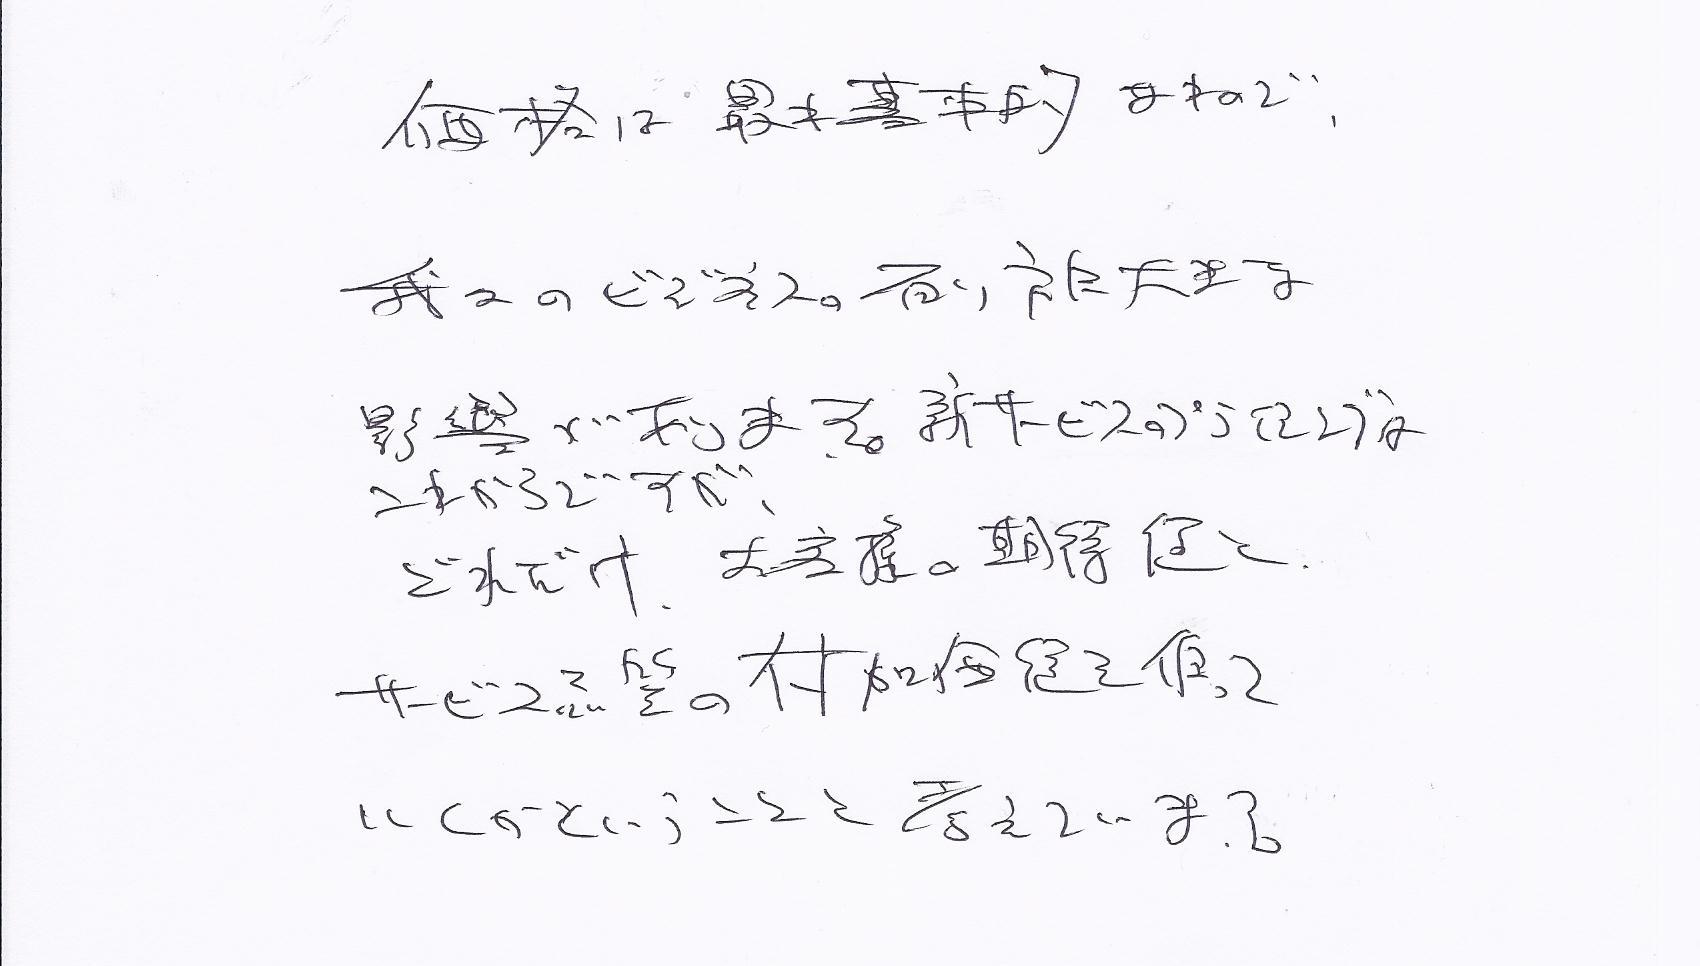 価格は最も基本的なもので、
我々のビジネスの在り方に大きな
影響が有ります。新サービスのプライシングは
これからですが、
どれだけ、お客様の期待値と、
サービス品質の付加価値を使って
いくかということと考えています。